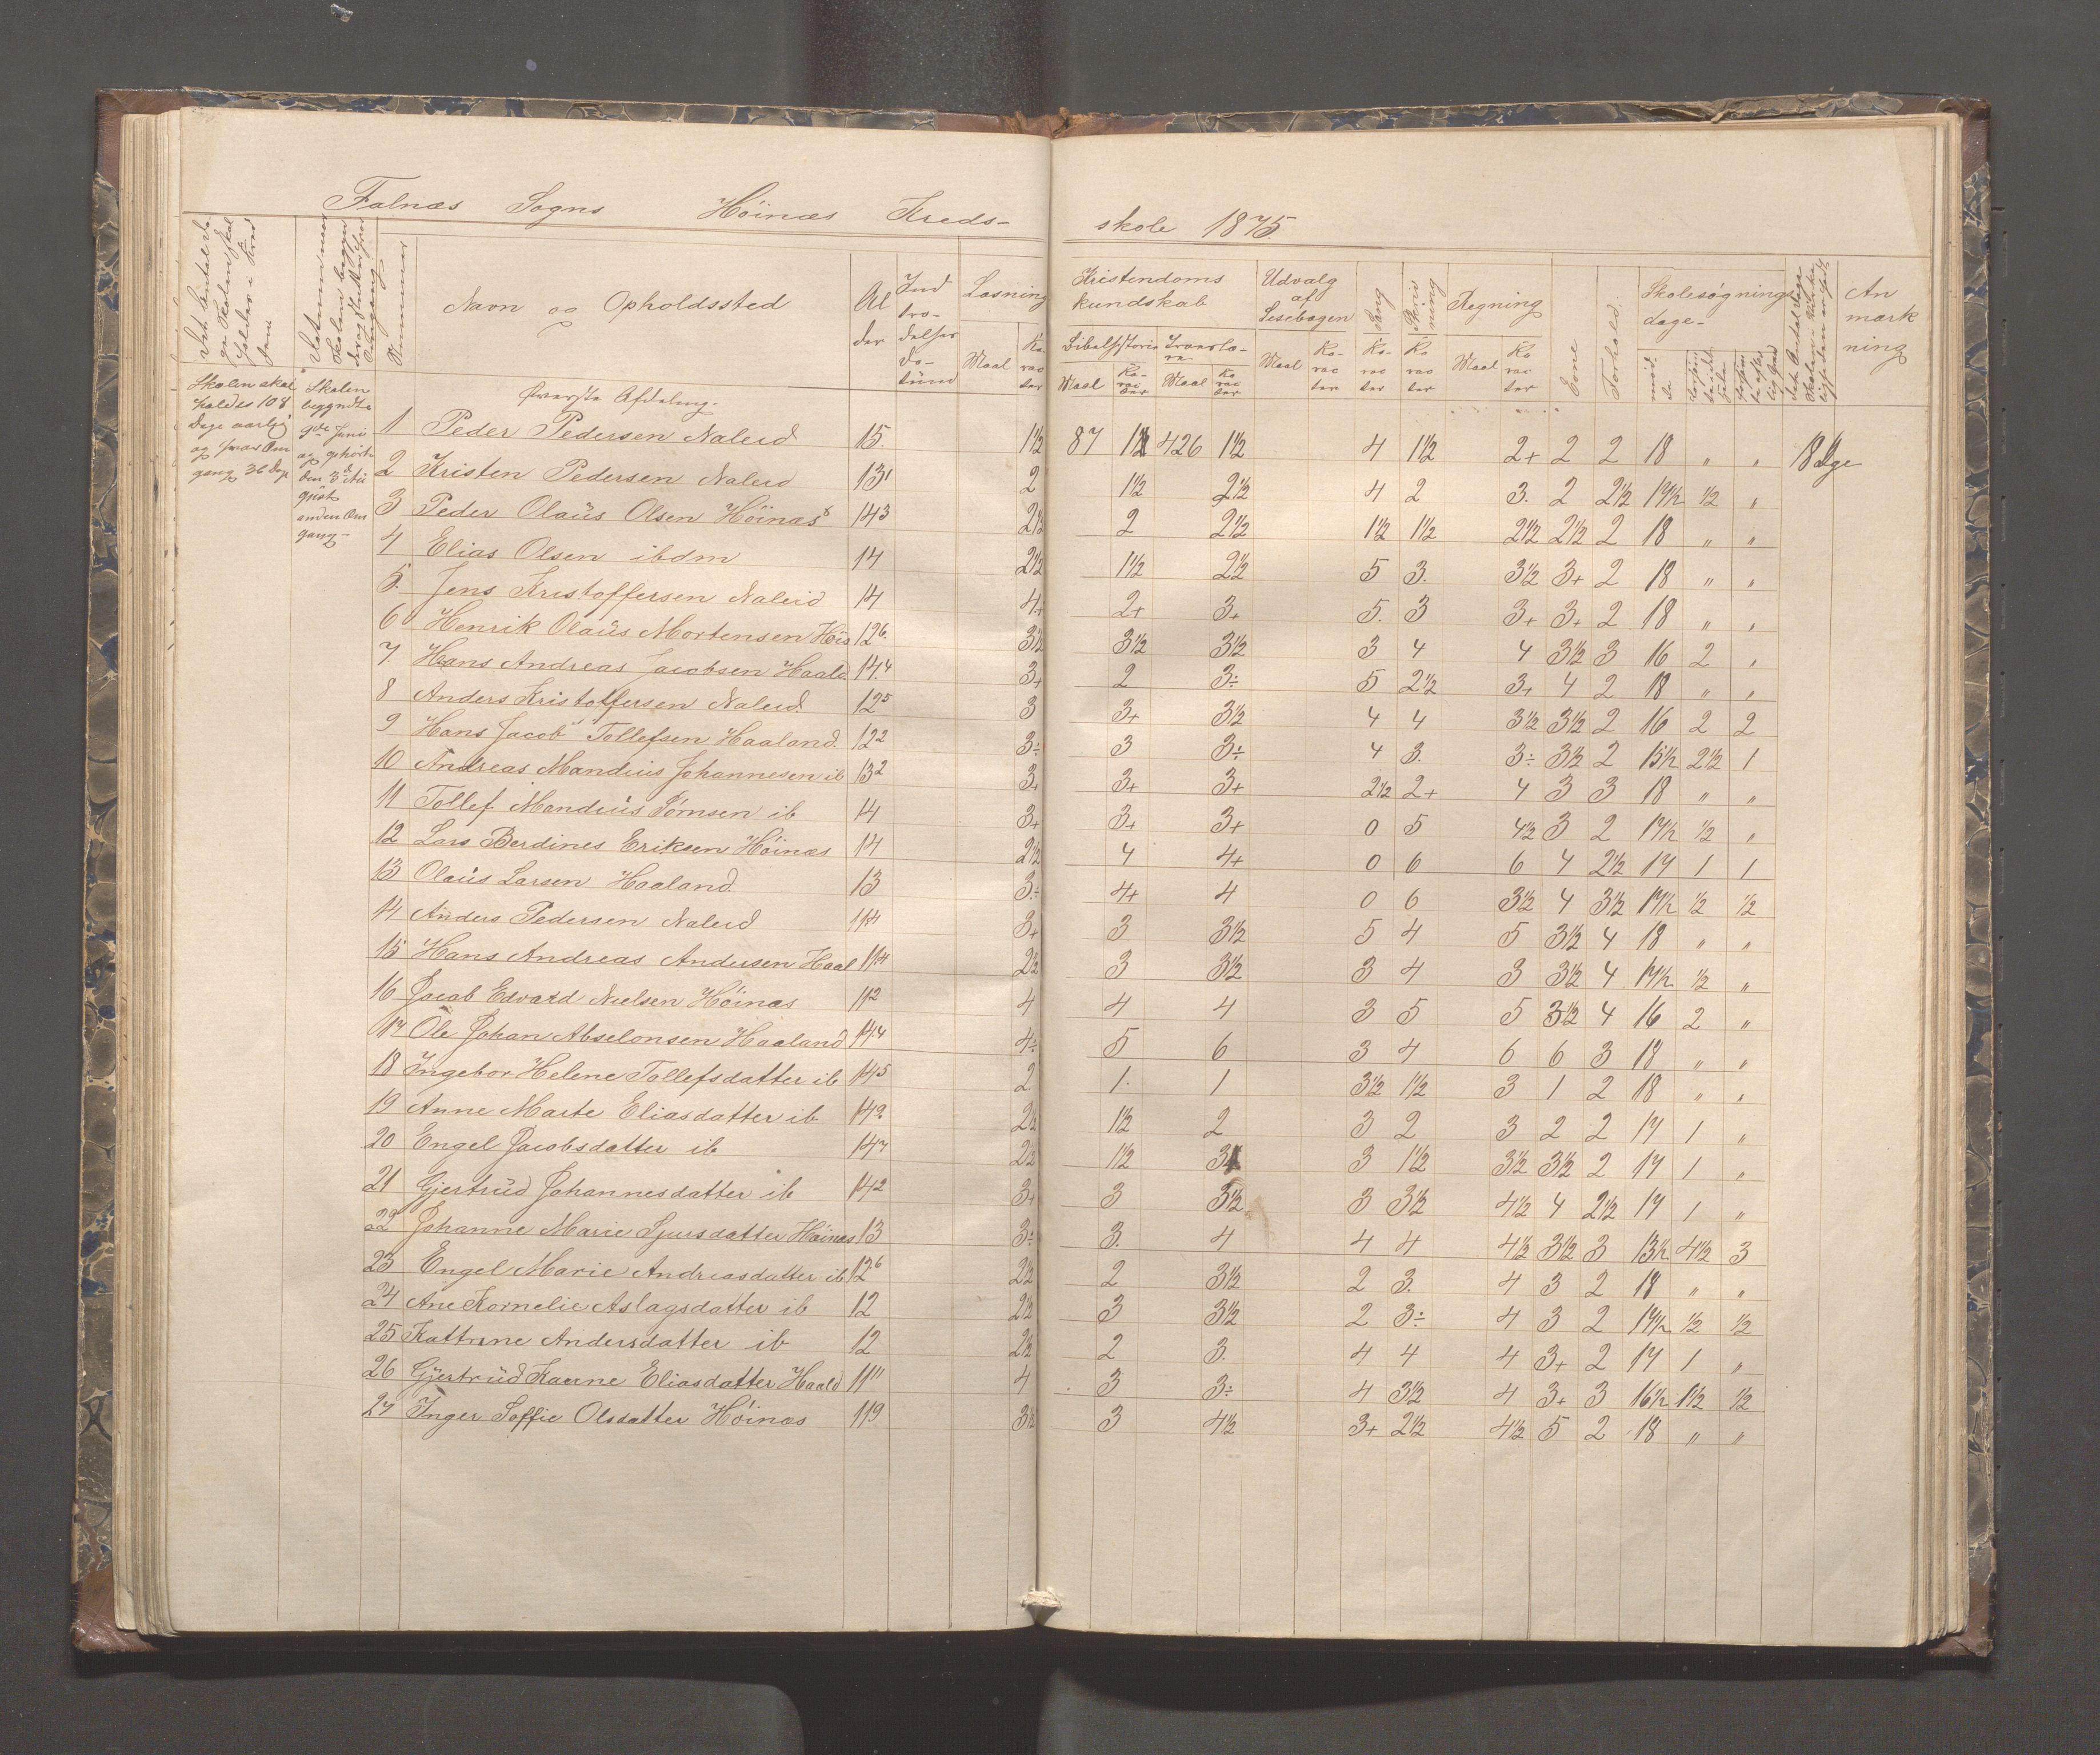 Falnæs Sogns Höinæs Kreds- skole 1875.
Navn og Opholdssted
Al der
Ind tro- delses da- tum
Læsning
Maal
Ka- rac ter
Kristendoms kundskab
Bibelhistorie
Maal
Ka- rac ter
Maal
Ka rac ter
Udvalg af Læsebogen
Maal
Ka- rac ter
Sang
Ka- rac ter
Skriv ning
Ka rac ter
Regning
Maal
Ka rac ter
Evne
Forhold.
Skolesøgnings dage-
An mærk ning
Skolen skal holdes 108 Dage aarlig og hver Om gang 36 Dge
Skolen begyndte 9de Juni og ophørte den 3d Au gust anden Om gang-
Øverste Afdeling.
1 Peder Pedersen Naleid 15. 1½ 87 1½ 426 1½ 4 1½ 2+ 2 2 18 „ „ 18 Dge
2 Kristen Pedersen Naleid 13¹ 2 1½ 2½ 4 2 3. 2 2½ 17½ ½ „
3 Peder Olaüs Olsen Höinæs 14³ 2½ 2 2½ 1½ 1½ 2½ 2½ 2 18 „ „
4 Elias Olsen ibdm 14 2½ 1½ 2½ 5 3. 3½ 3+ 2 18 „ „
5. Jens Kristoffersen Naleid 14 4+ 2+ 3+ 5. 3 3+ 3+ 2 18 „ „
6 Henrik Olaüs Mortensen Höi 12⁶ 3½ 3½ 3½ 3 4 4 3½ 3 16 2 „
7. Hans Andreas Jacobsen Haald 14.⁴ 3+ 2 3÷ 5 2½ 3+ 4 2 18 „ „
8 Anders Kristoffersen Naleid. 12⁵ 3 3+ 3½ 4 4 3½ 3½ 2 16 2 2
9 Hans Jacob Tollefsen Haaland. 12² 3÷ 3 3÷ 4 3. 3÷ 3½ 2 15½ 2½ 1
10 Andreas Mandius Johannesen ib 13² 3+ 3+ 3+ 2½ 2+ 4 3 3 18 „ „
11 Tollef Mandiüs Tørnsen ib 14 3+ 3+ 3+ 0 5 4½ 3 2 17½ ½ „
12 Lars Berdines Eriksen Höinæs 14 2½ 4 4+ 0 6 6 4 2½ 17 1 1
13 Olaüs Larsen Haaland. 13 3÷ 4+ 4 0 6 3½ 4 3½ 17½ ½ ½
14 Anders Pedersen Naleid 11⁴ 3+ 3 3½ 5 4 5 3½ 4 18 „ „
15 Hans Andreas Andersen Haal 11⁴ 2½ 3 3½ 3 4 3 3½ 4 17½ ½ „
16 Jacob Edvard Nielsen Höinæs 11² 4 4 4 3 5 5 3½ 4 16 2 „
17 Ole Johan Abselonsen Haaland 14.⁴ 4÷ 5 6 3 4 6 6 3 18 „ „
18 Ingebor Helene Tollefsdatter ib 14⁵ 2 1. 1 3½ 1½ 3 1 2 18 „ „
19 Anne Marte Eliasdatter ib 14² 2½ 1½ 2 3 2 3 2 2 17 1 „
20 Engel Jacobsdatter ib 14⁷ 2½ 1½ 3 3 1½ 3½ 3½ 2 17 1 „
21 Gjertrüd Johannesdatter ib 14² 3+ 3 3½ 3 3½ 4½ 4 2½ 17 1 „
22 Johanne Marie Sjursdatter Höinæs 13 3÷ 3. 4 4 4 4½ 3½ 3 13½ 4½ 3
23 Engel Marie Andreasdatter ib 12⁶ 2½ 2 3½ 2 3. 4 3 2 18 „ „
24 Ane Kornelie Aslagsdatter ib 12 2½ 3 3½ 2 3÷ 4 3 2 17½ ½ ½
25 Kattrine Andersdatter ib 12 2½ 2 3. 4 4 4 3+ 2 17 1 „
26 Gjertrüd Karine Eliasdatter Haald 11¹¹ 4 3 3÷ 4 3½ 4 3+ 3 16½ 1½ ½
27 Inger Soffie Olsdatter Höinæs 11⁹ 3½ 3 4½ 3+ 2½ 4½ 5 2 18 „ „